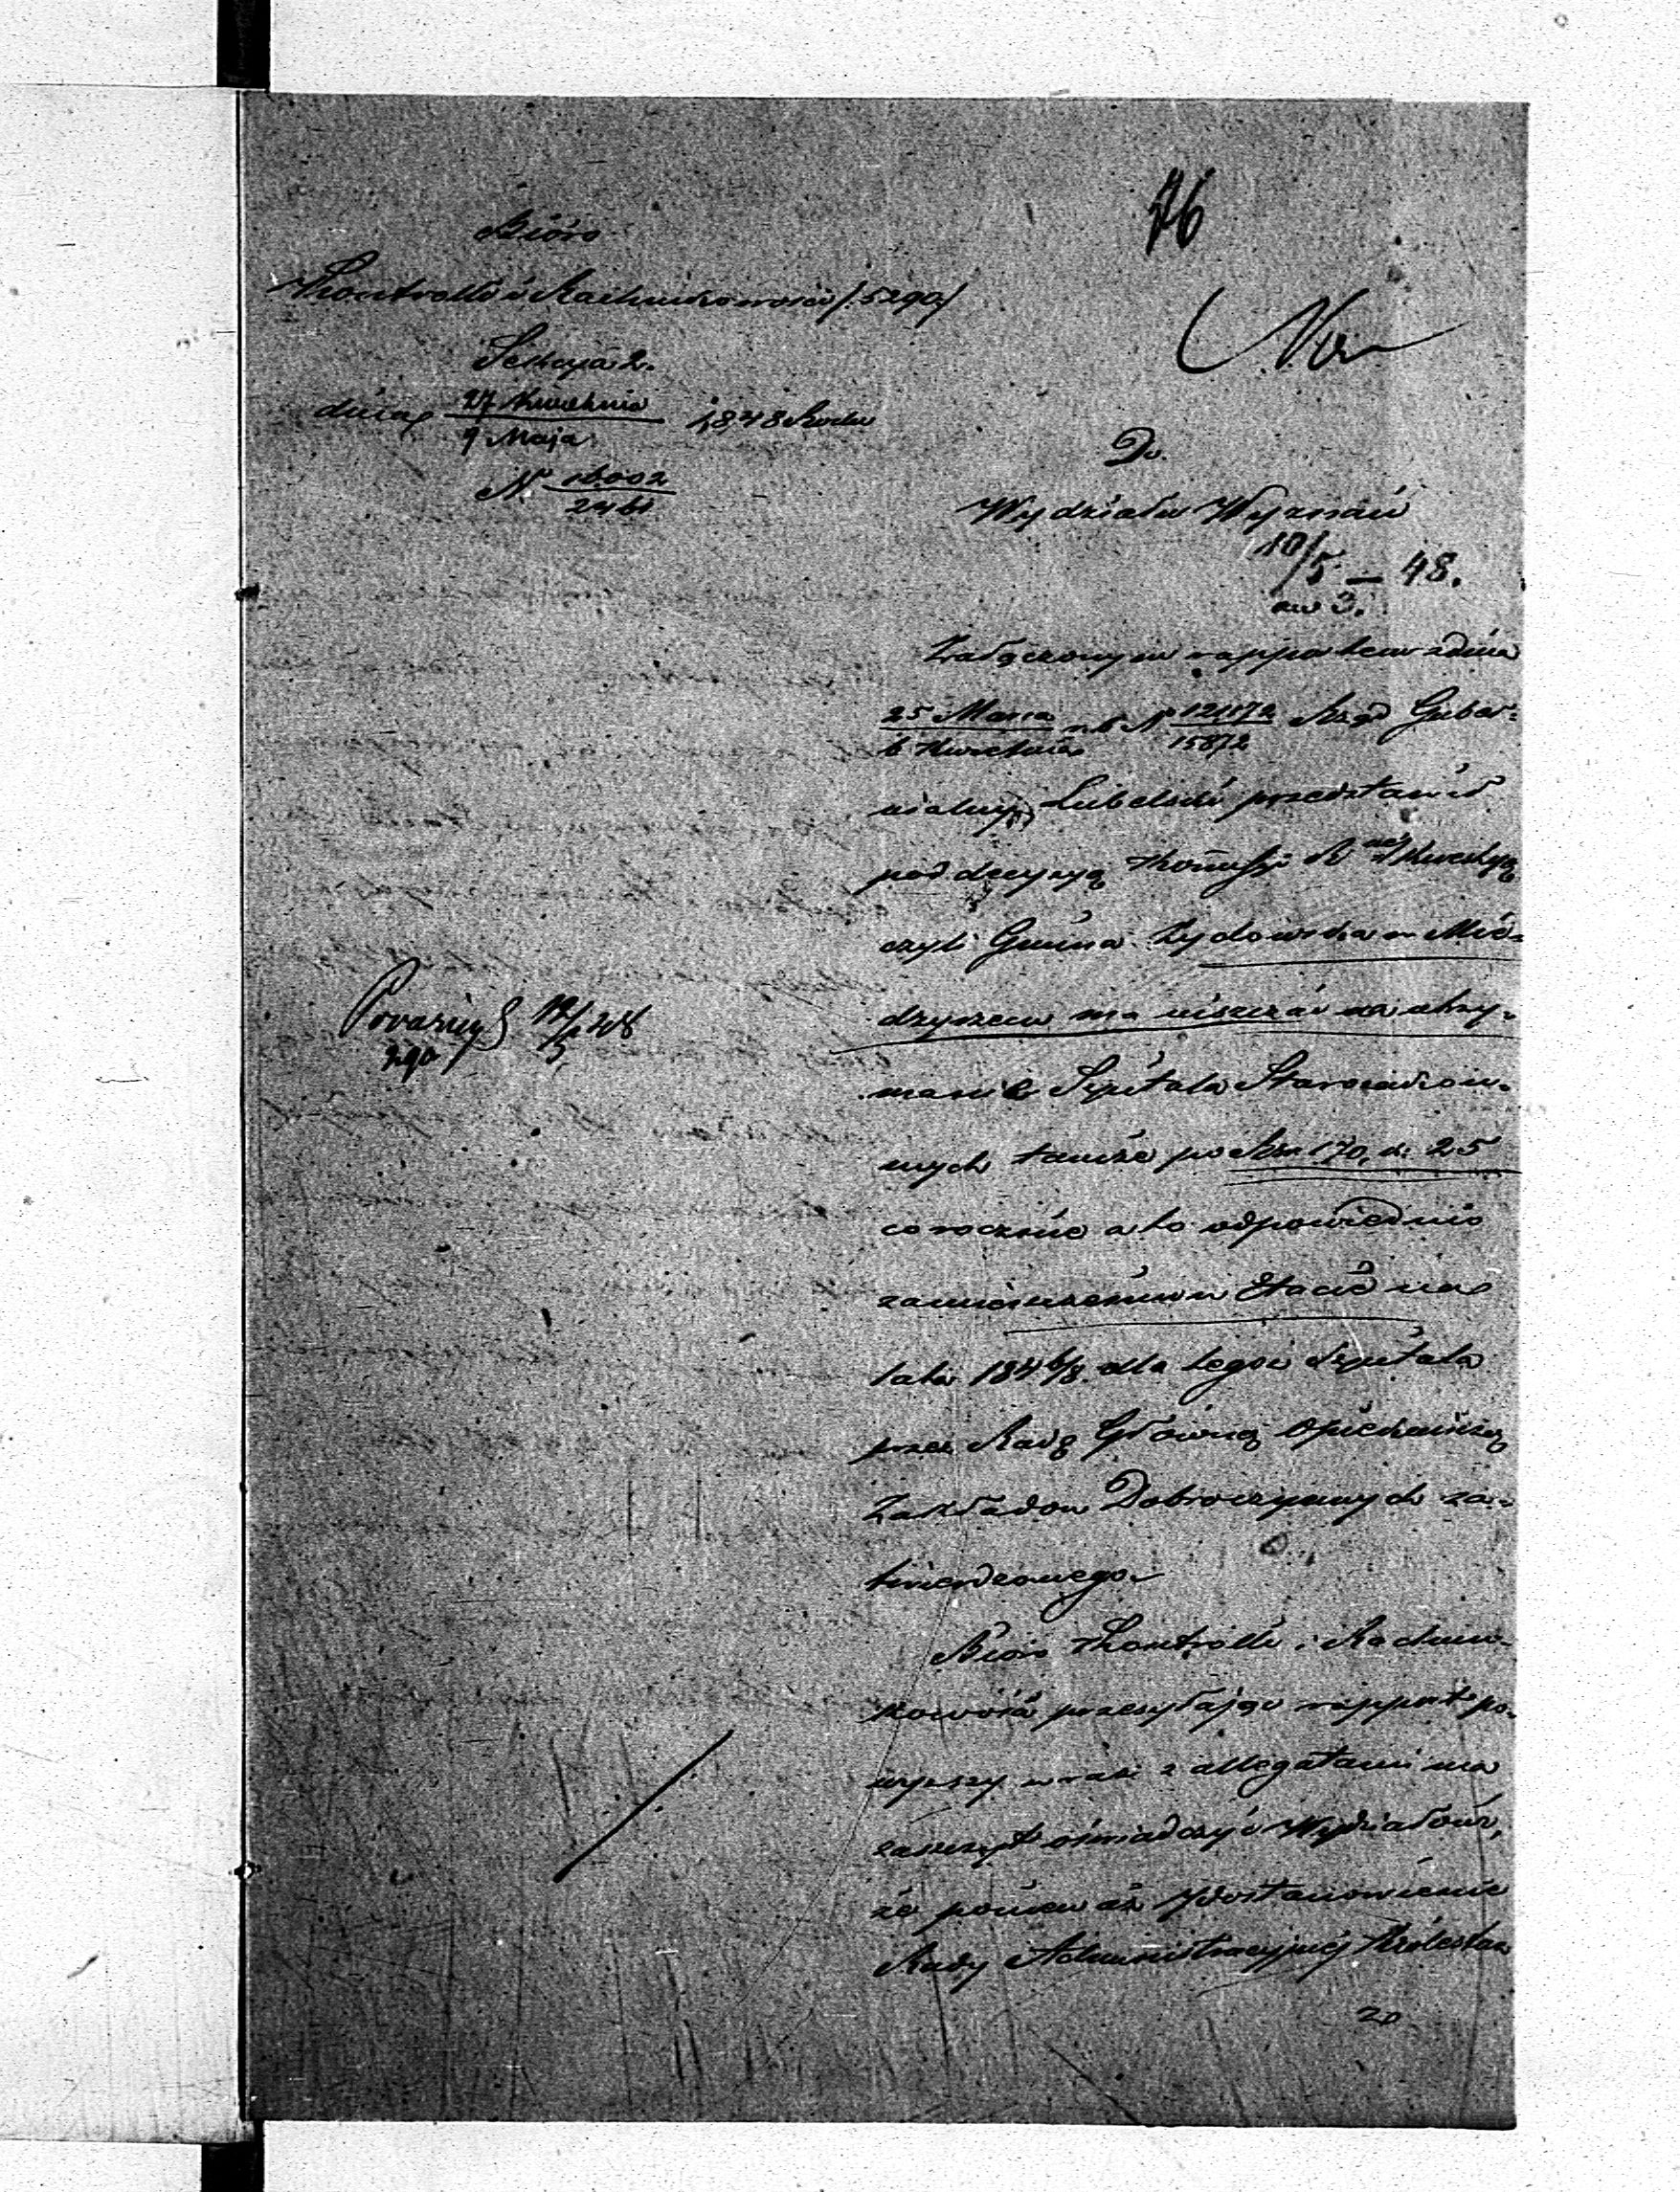 76
Bióro
Kontrolli i Rachunkowości /:5290/
Sekcya 2.
dnia 27 Kwietnia / 9 Maja 1848 Roku
N 16002 / 2461
Do
Wydziału Wyznań
10/5 – 48.
Załączonym rapportem z dnia
25 Marca / 6 Kwietnia r.b. N 121172 / 15872 Rząd Guber-
nialny Lubelski przedstawił
pod decyzyą Kommissyi R kwestyą
czyli Gmina Żydowska w Mię-
dzyrzecu ma uiszczać na utrzy-
manie Szpitala Starozakon-
nych tamże po Rsr 170, k: 25
corocznie a to odpowiednio
zamieszczeniu w Etacie na
lata 1846/8. dla tegoż Szpitala
przez Radę Główną Opiekuńczą
Zakładów Dobroczynnych za-
twierdzonego.
Bióro Kontrolli i Rachun-
kowości przesyłając rapport po-
wyższy wraz z allegatami ma
zaszczyt oświadczyć Wydziałowi,
że ponieważ Postanowienie
Rady Administracyjnej Królestwa
z d